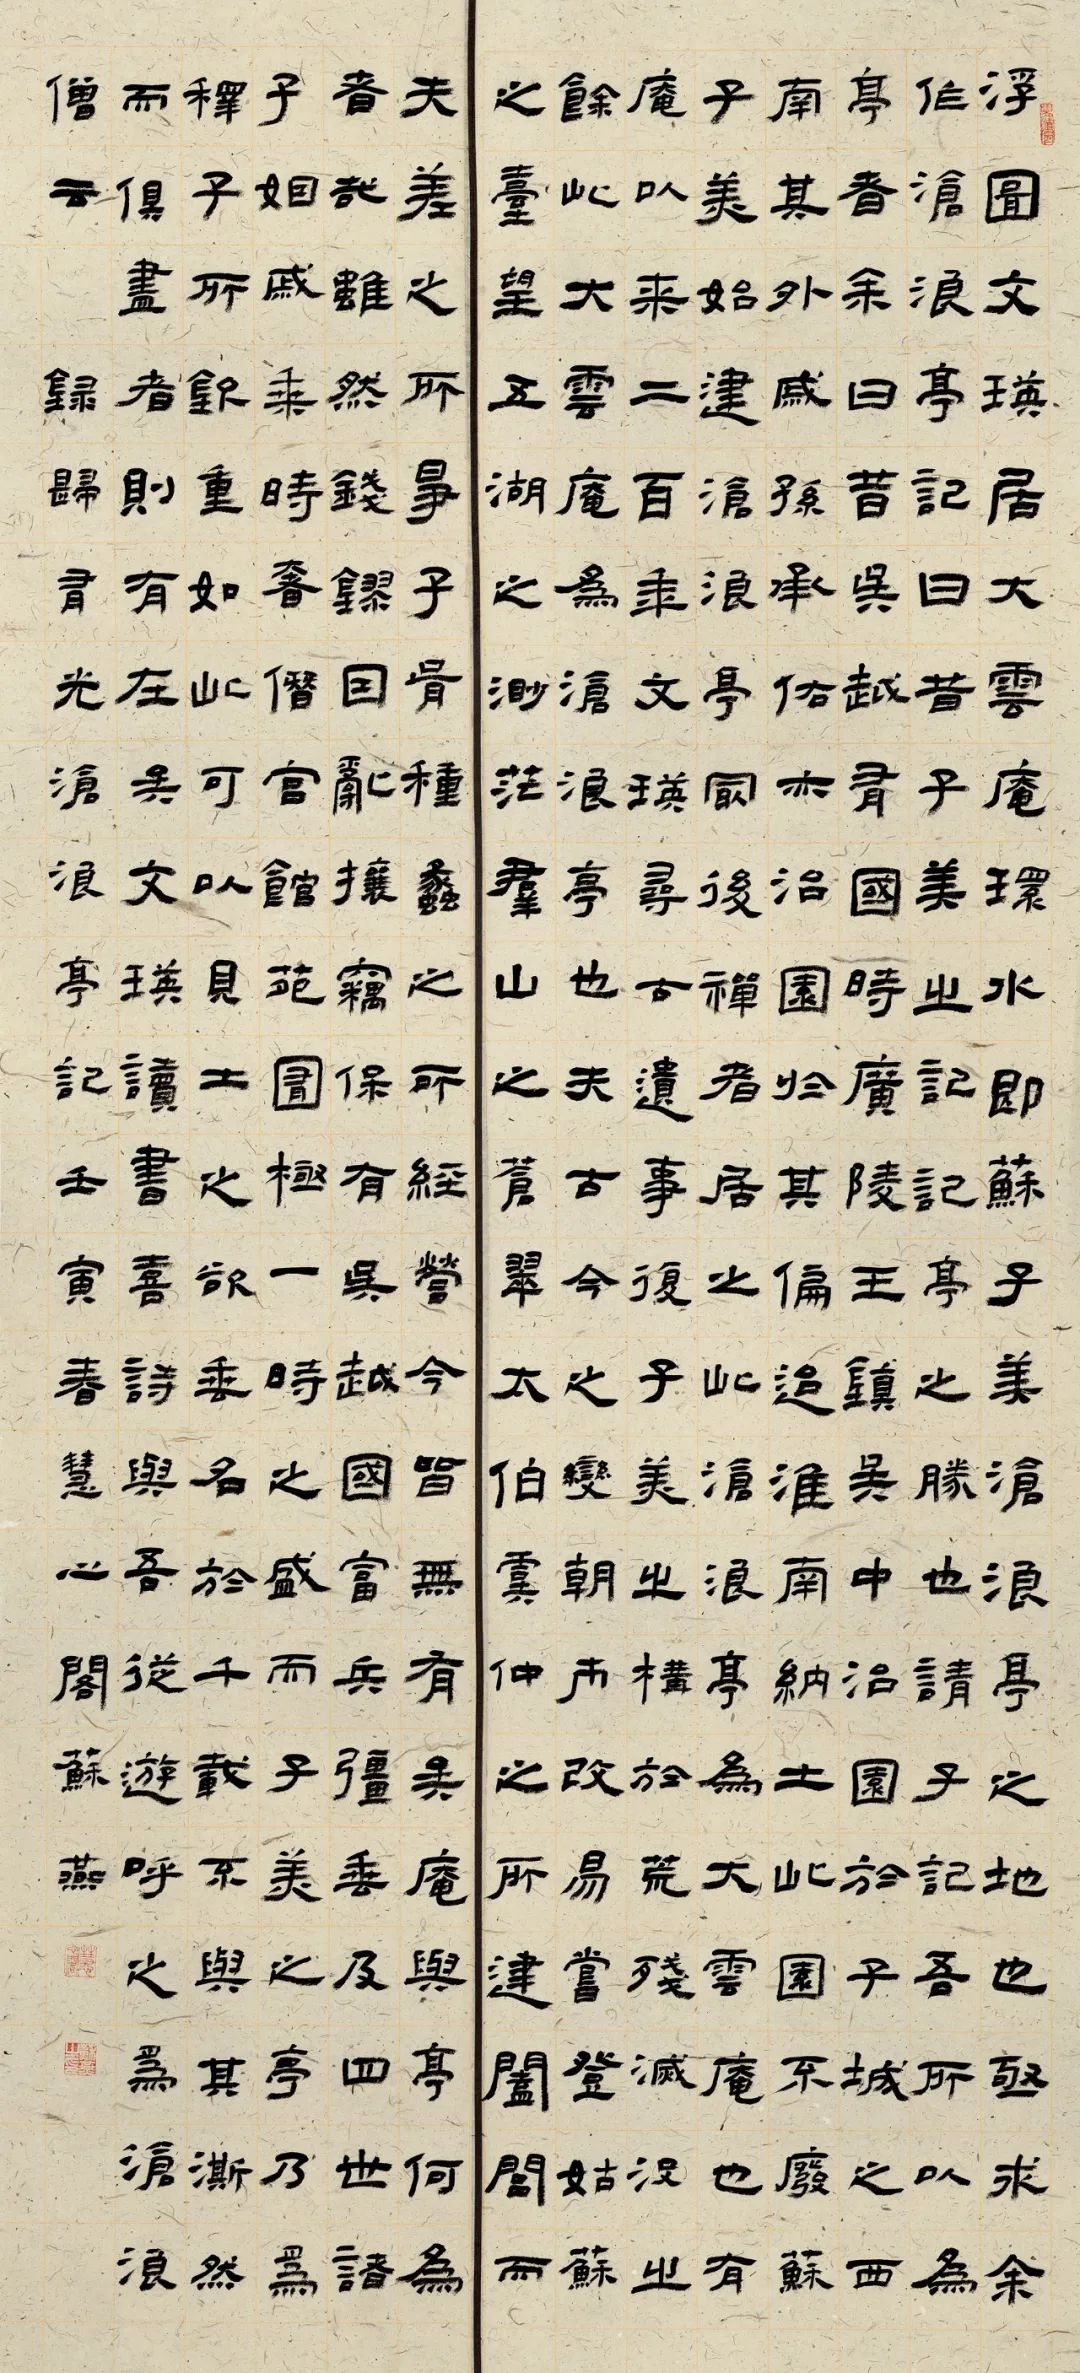 浮圖文瑛居大雲庵環水即蘇子美滄浪亭之地也亟求余
作滄浪亭記曰昔子美之記記亭之勝也請子記吾所以為
亭者余曰昔吳越有國時廣陵王鎮吳中治園於子城之西
南其外戚孫承佑亦治園於其偏迨淮南納土此園不廢蘇
子美始建滄浪亭最後禪者居之此滄浪亭為大雲庵也有
庵以来二百年文瑛尋古遺事復子美之構於荒殘滅沒之
餘此大雲庵為滄浪亭也夫古今之變朝市改易嘗登姑蘇
之臺望五湖之渺茫羣山之蒼翠太伯虞仲之所建闔閭而
夫差之所爭子胥種蠡之所經營今皆無有矣庵與亭何為
者哉雖然錢鏐因亂攘竊保有吳越國富兵彊垂及四世諸
子姻戚乘時奢僭宮館苑囿極一時之盛而子美之亭乃為
釋子所欽重如此可以見士之欲垂名於千載不與其澌然
而俱盡者則有在矣文瑛讀書喜詩與吾從遊呼之為滄浪
僧云 錄歸有光滄浪亭記壬寅春慧心閣蘇燕